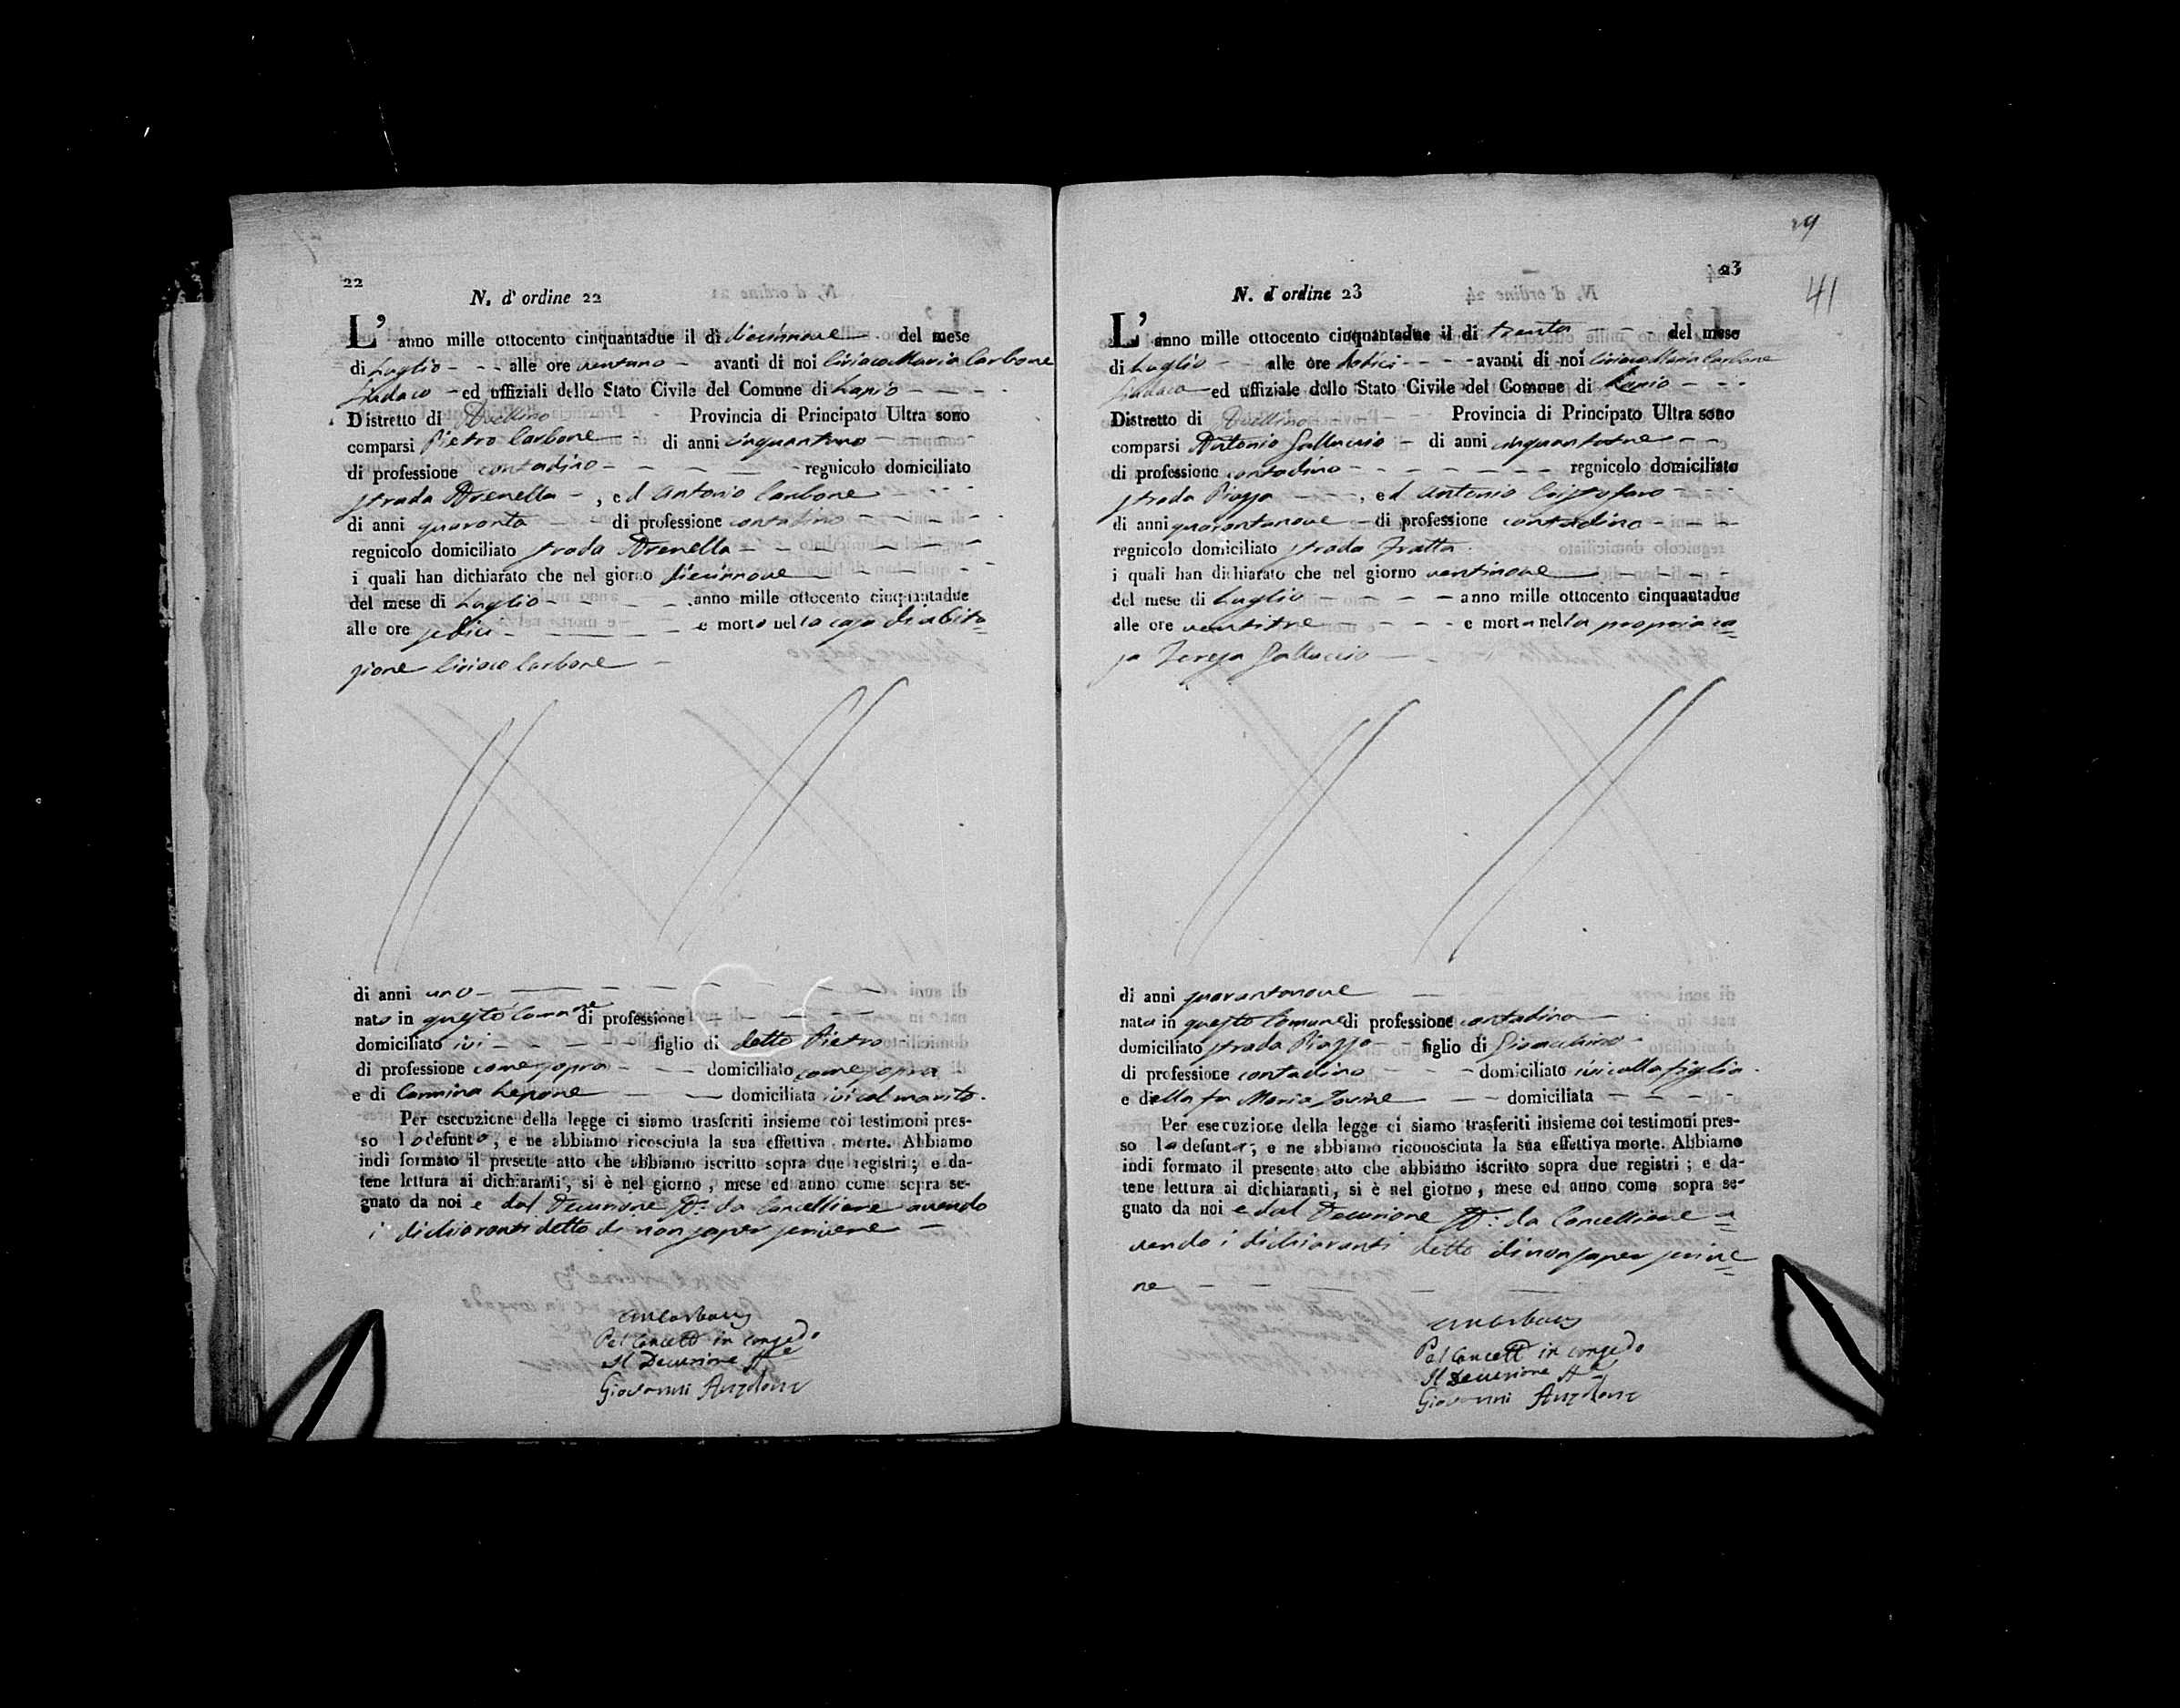 22
N. d' ordine 22
L' anno mille ottocento cinquantadue il di diecinnove del mese
di Luglio - - - alle ore ventuno - avanti di noi Ciriaco Maria Carbone
Sindaco - ed uffiziali dello Stato Civile del Comune di Lapio - - - -
Distretto di Avellino Provincia di Principato Ultra sono
comparsi Pietro Carbone - di anni cinquantuno -
di professione contadino - - - - - regnicolo domiciliato
strada Arenella - , ed Antonio Carbone - - -
di anni quaranta - di professione contadino - - - - -
regnicolo domiciliato strada Arenella - - - - - - -
i quali han dichiarato che nel giorno diecinnove - - - -
del mese di Luglio - - - - anno mille ottocento cinquantadue
alle ore sedici - - - - e morto nella casa di abita=
zione Ciriaco Carbone -
di anni uno - - - - - - - -
nato in questo Comune di professione - - - - -
domiciliato ivi - - - - - figlio di detto Pietro -
di professione come sopra - - - domiciliato come sopra
e di Carmina Lepore - - domiciliata ivi col marito.
Per esecuzione della legge ci siamo trasferiti insieme coi testimoni pres-
so lo defunto, e ne abbiamo ricosciuta la sua effettiva morte. Abbiamo
indi formato il presente atto che abbiamo iscritto sopra due registri; e da-
tene lettura ai dichiaranti, si è nel giorno, mese ed anno come sopra se-
gnato da noi e dal Decurione da Cancelliere avendo
i dichiaranti detto di non saper scrivere -
Pel Cancell in congedo
Il Decurione
Giovanni Anzalone
29
23
41
N. d' ordine 23
L' anno mille ottocento cinquantadue il di trenta - - - del mese
di Luglio - - alle ore dodici - - - - avanti di noi Ciriaco Maria Carbone
Sindaco - ed uffiziale dello Stato Civile del Comune di Lapio - - -
Distretto di Avellino Provincia di Principato Ultra sono
comparsi Antonio Galluccio - di anni cinquantatre - -
di professione contadino - - - - - - - - regnicolo domiciliato
strada Piazza - - - , ed Antonio Cristofaro - - -
di anni quarantanove - di professione contadino - - - -
regnicolo domiciliato strada Fratta.
i quali han dichiarato che nel giorno ventinove - - - -
del mese di Luglio - - - - - anno mille ottocento cinquantadue
alle ore ventitre - - - - e morta nella propria ca=
sa Teresa Galluccio -
di anni quarantanove - -
nata in questo Comune di professione contadina -
domiciliato strada Piazza - - figlio di Gioacchino -
di professione contadino - - - domiciliato ivi colla figlia.
e della fu Maria Iovine - - domiciliata - - - -
Per esecuzione della legge ci siamo trasferiti insieme coi testimoni pres-
so la defunta; e ne abbiamo riconosciuta la sua effettiva morte. Abbiamo
indi formato il presente atto che abbiamo iscritto sopra due registri; e da-
tene lettura ai dichiaranti, si è nel giorno, mese ed anno come sopra se-
gnato da noi e dal Decurione da Cancelliere a=
vendo i dichiaranti detto di non saper scrive=
re - - - -
Pel Cancell in congedo
Il Decurione
Giovanni Anzalone